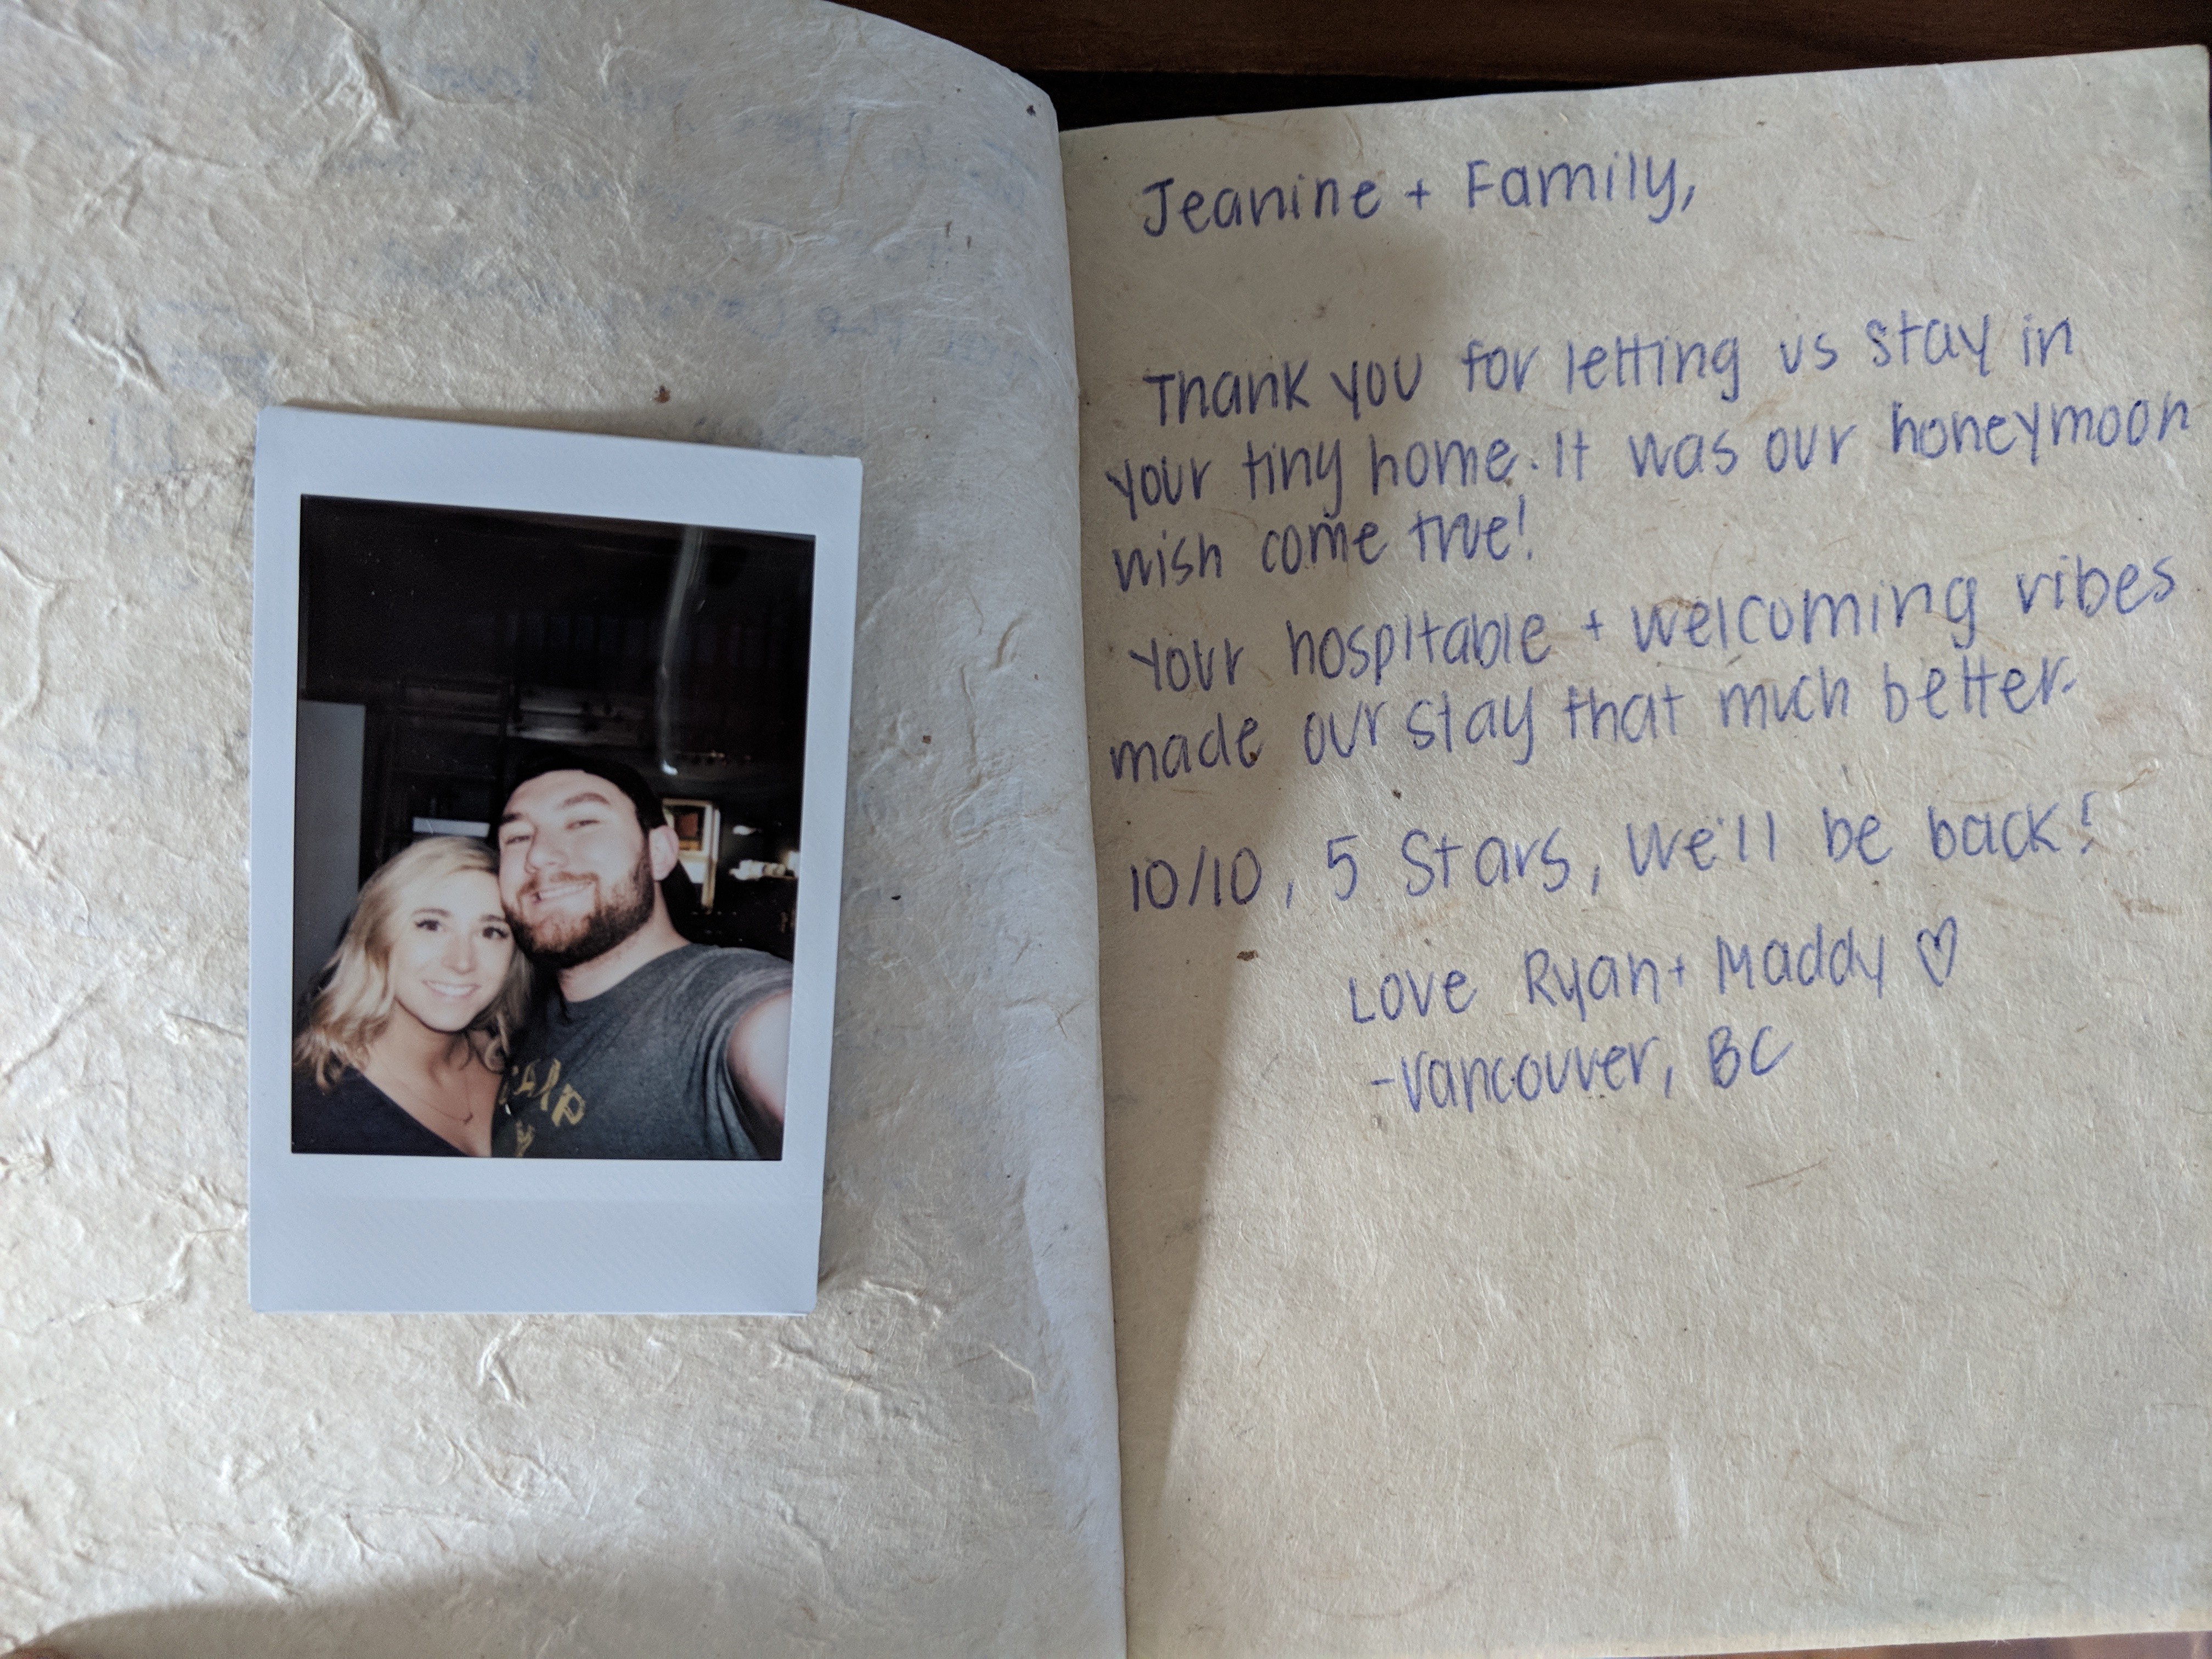 Jeanine + Family,
Thank you for letting us stay in
your tiny home. It was our honeymoon
wish come true!
Your hospitable + welcoming vibes
made our stay that much better.
10/10, 5 Stars, We'll be back!
Love Ryan + Maddy ♡
-Vancouver, BC